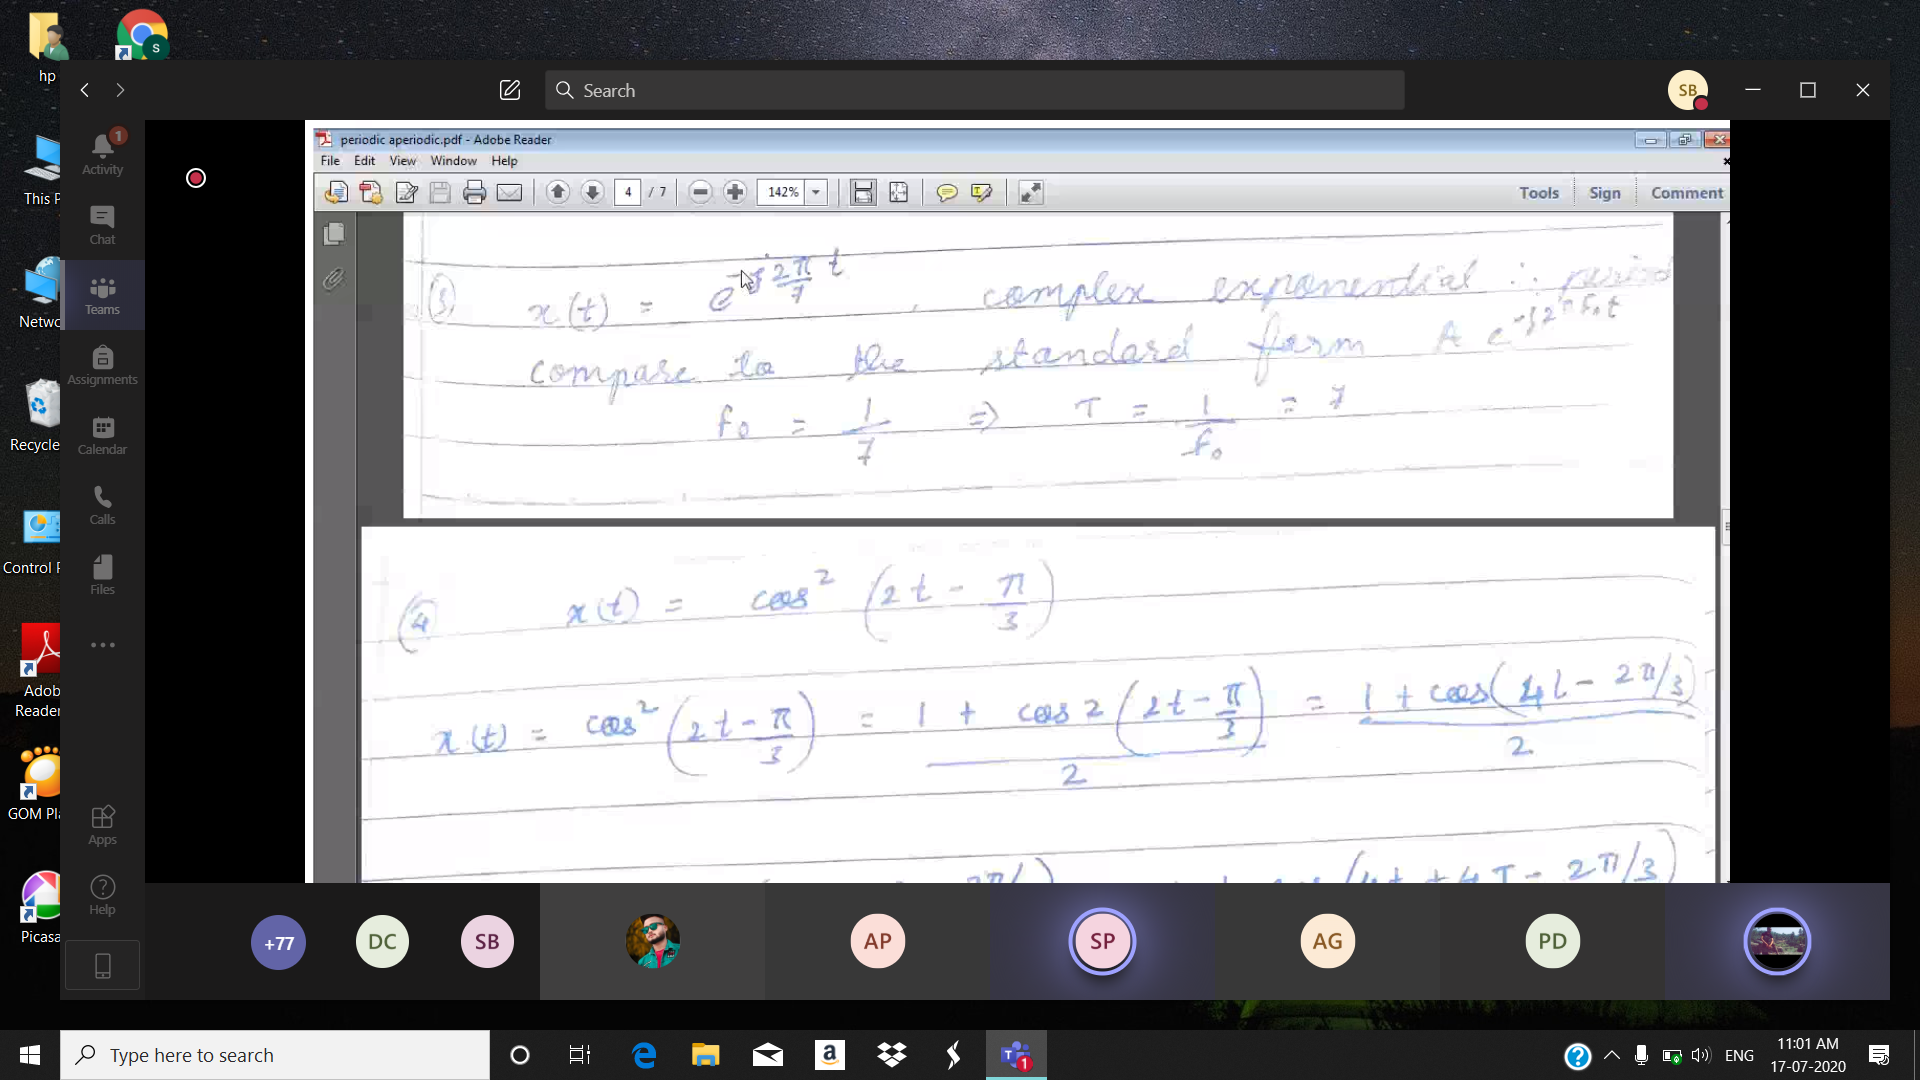 hp
S
Search
SB
This P
Netwo
Recycle
Control P
Adob
Reader
GOM Pl
Picasa
1
Activity
Chat
Teams
Assignments
Calendar
Calls
Files
Apps
Help
periodic aperiodic.pdf - Adobe Reader
File Edit View Window Help
4 / 7 142% Tools Sign Comment
③ x(t) = e^{-j 2π/7 t}, complex exponential ∴ period
compare to the standard form A e^{-j2πf₀t}
f₀ = 1/7 ⇒ T = 1/f₀ = 7
④ x(t) = cos² (2t - π/3)
x(t) = cos² (2t - π/3) = 1 + cos 2 (2t - π/3) / 2 = 1 + cos(4t - 2π/3) / 2
(4t + 4T - 2π/3)
+77 DC SB AP SP AG PD
Type here to search
a
1
ENG
11:01 AM
17-07-2020